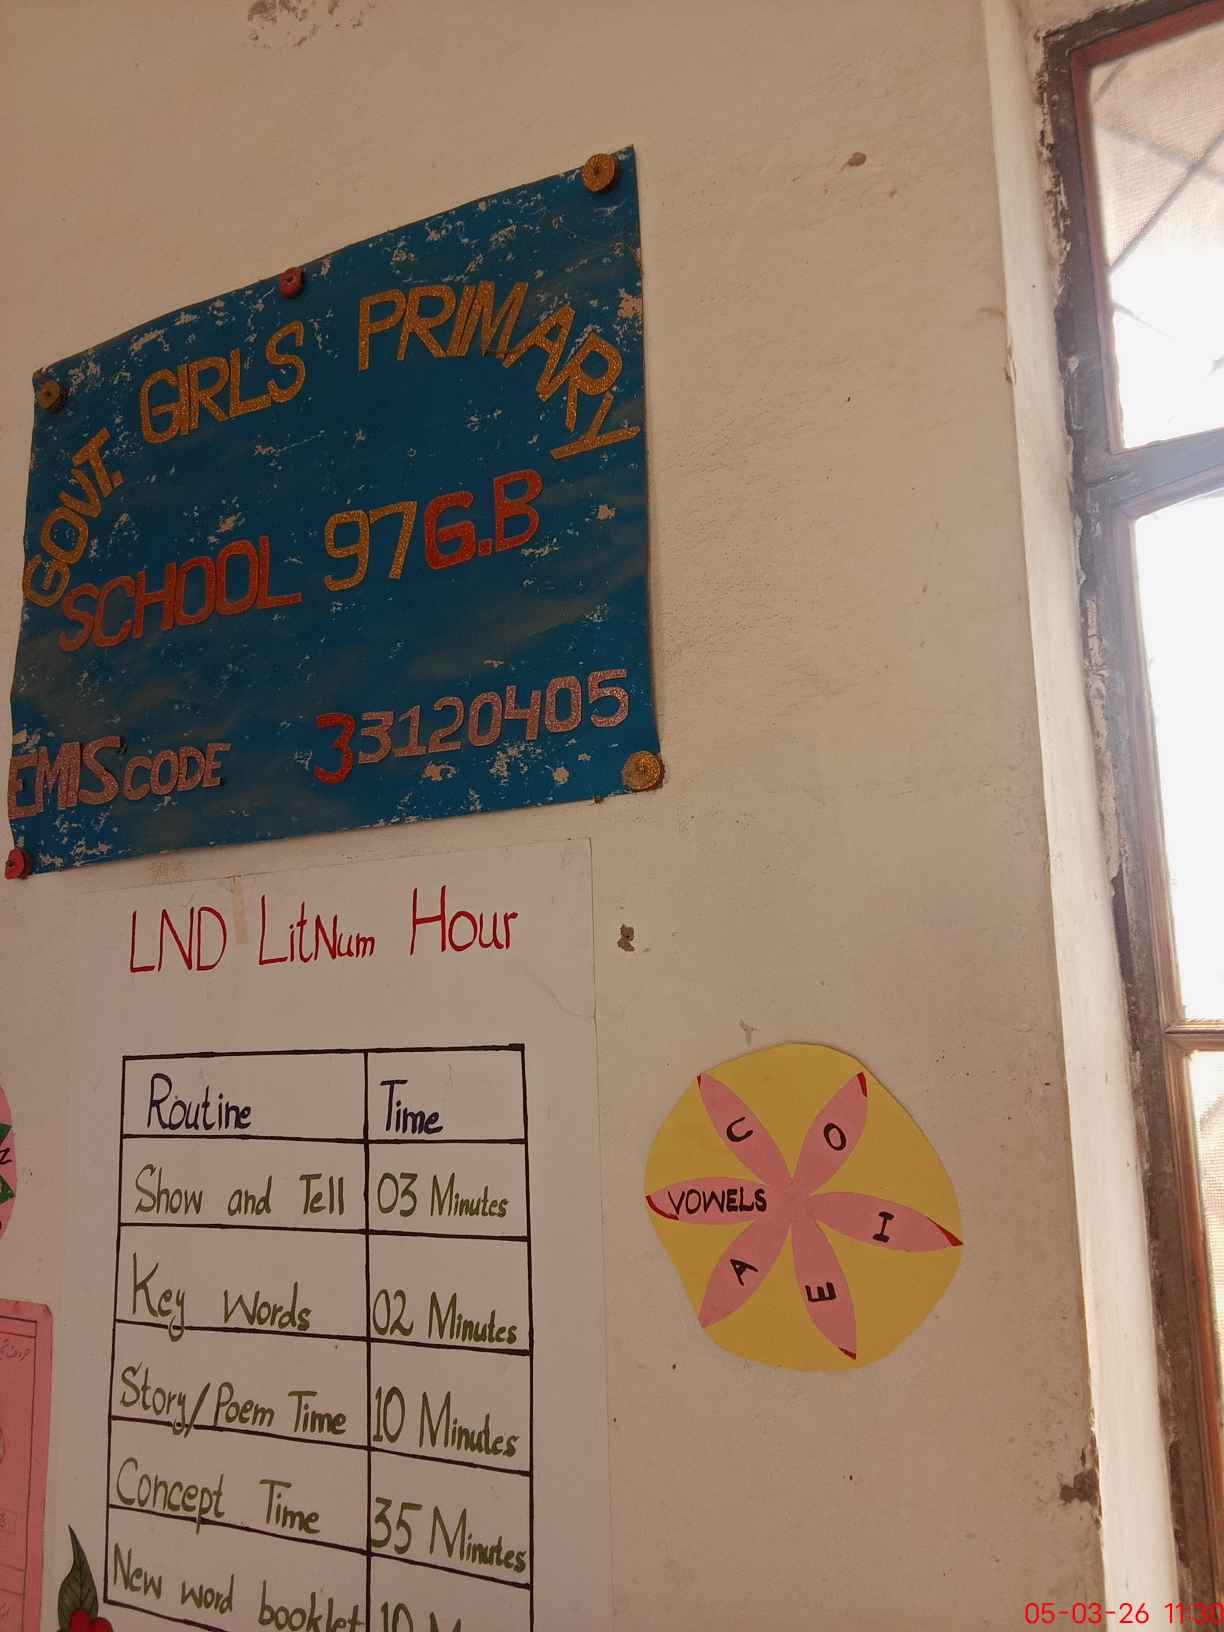 GOVT. GIRLS PRIMARY
SCHOOL 97 G.B
EMIS CODE 33120405
LND LitNum Hour
Routine Time
Show and Tell 03 Minutes
Key Words 02 Minutes
Story/Poem Time 10 Minutes
Concept Time 35 Minutes
New word booklet 10
VOWELS
A
E
I
O
U
05-03-26 11:30